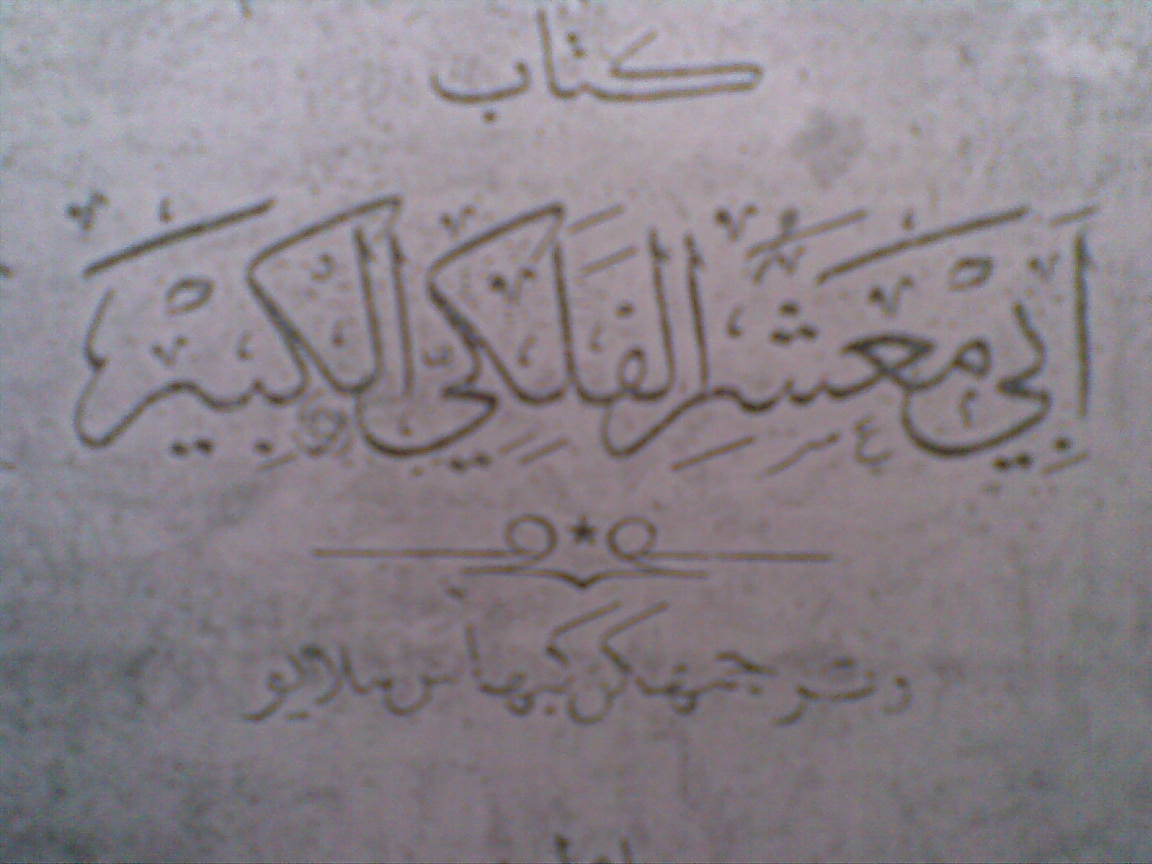 كتاب
اَبِيْ مَعْشَرِ الْفَلَكِيِّ الْكَبِيْرِ
دترجمهكن كبهاس ملايو